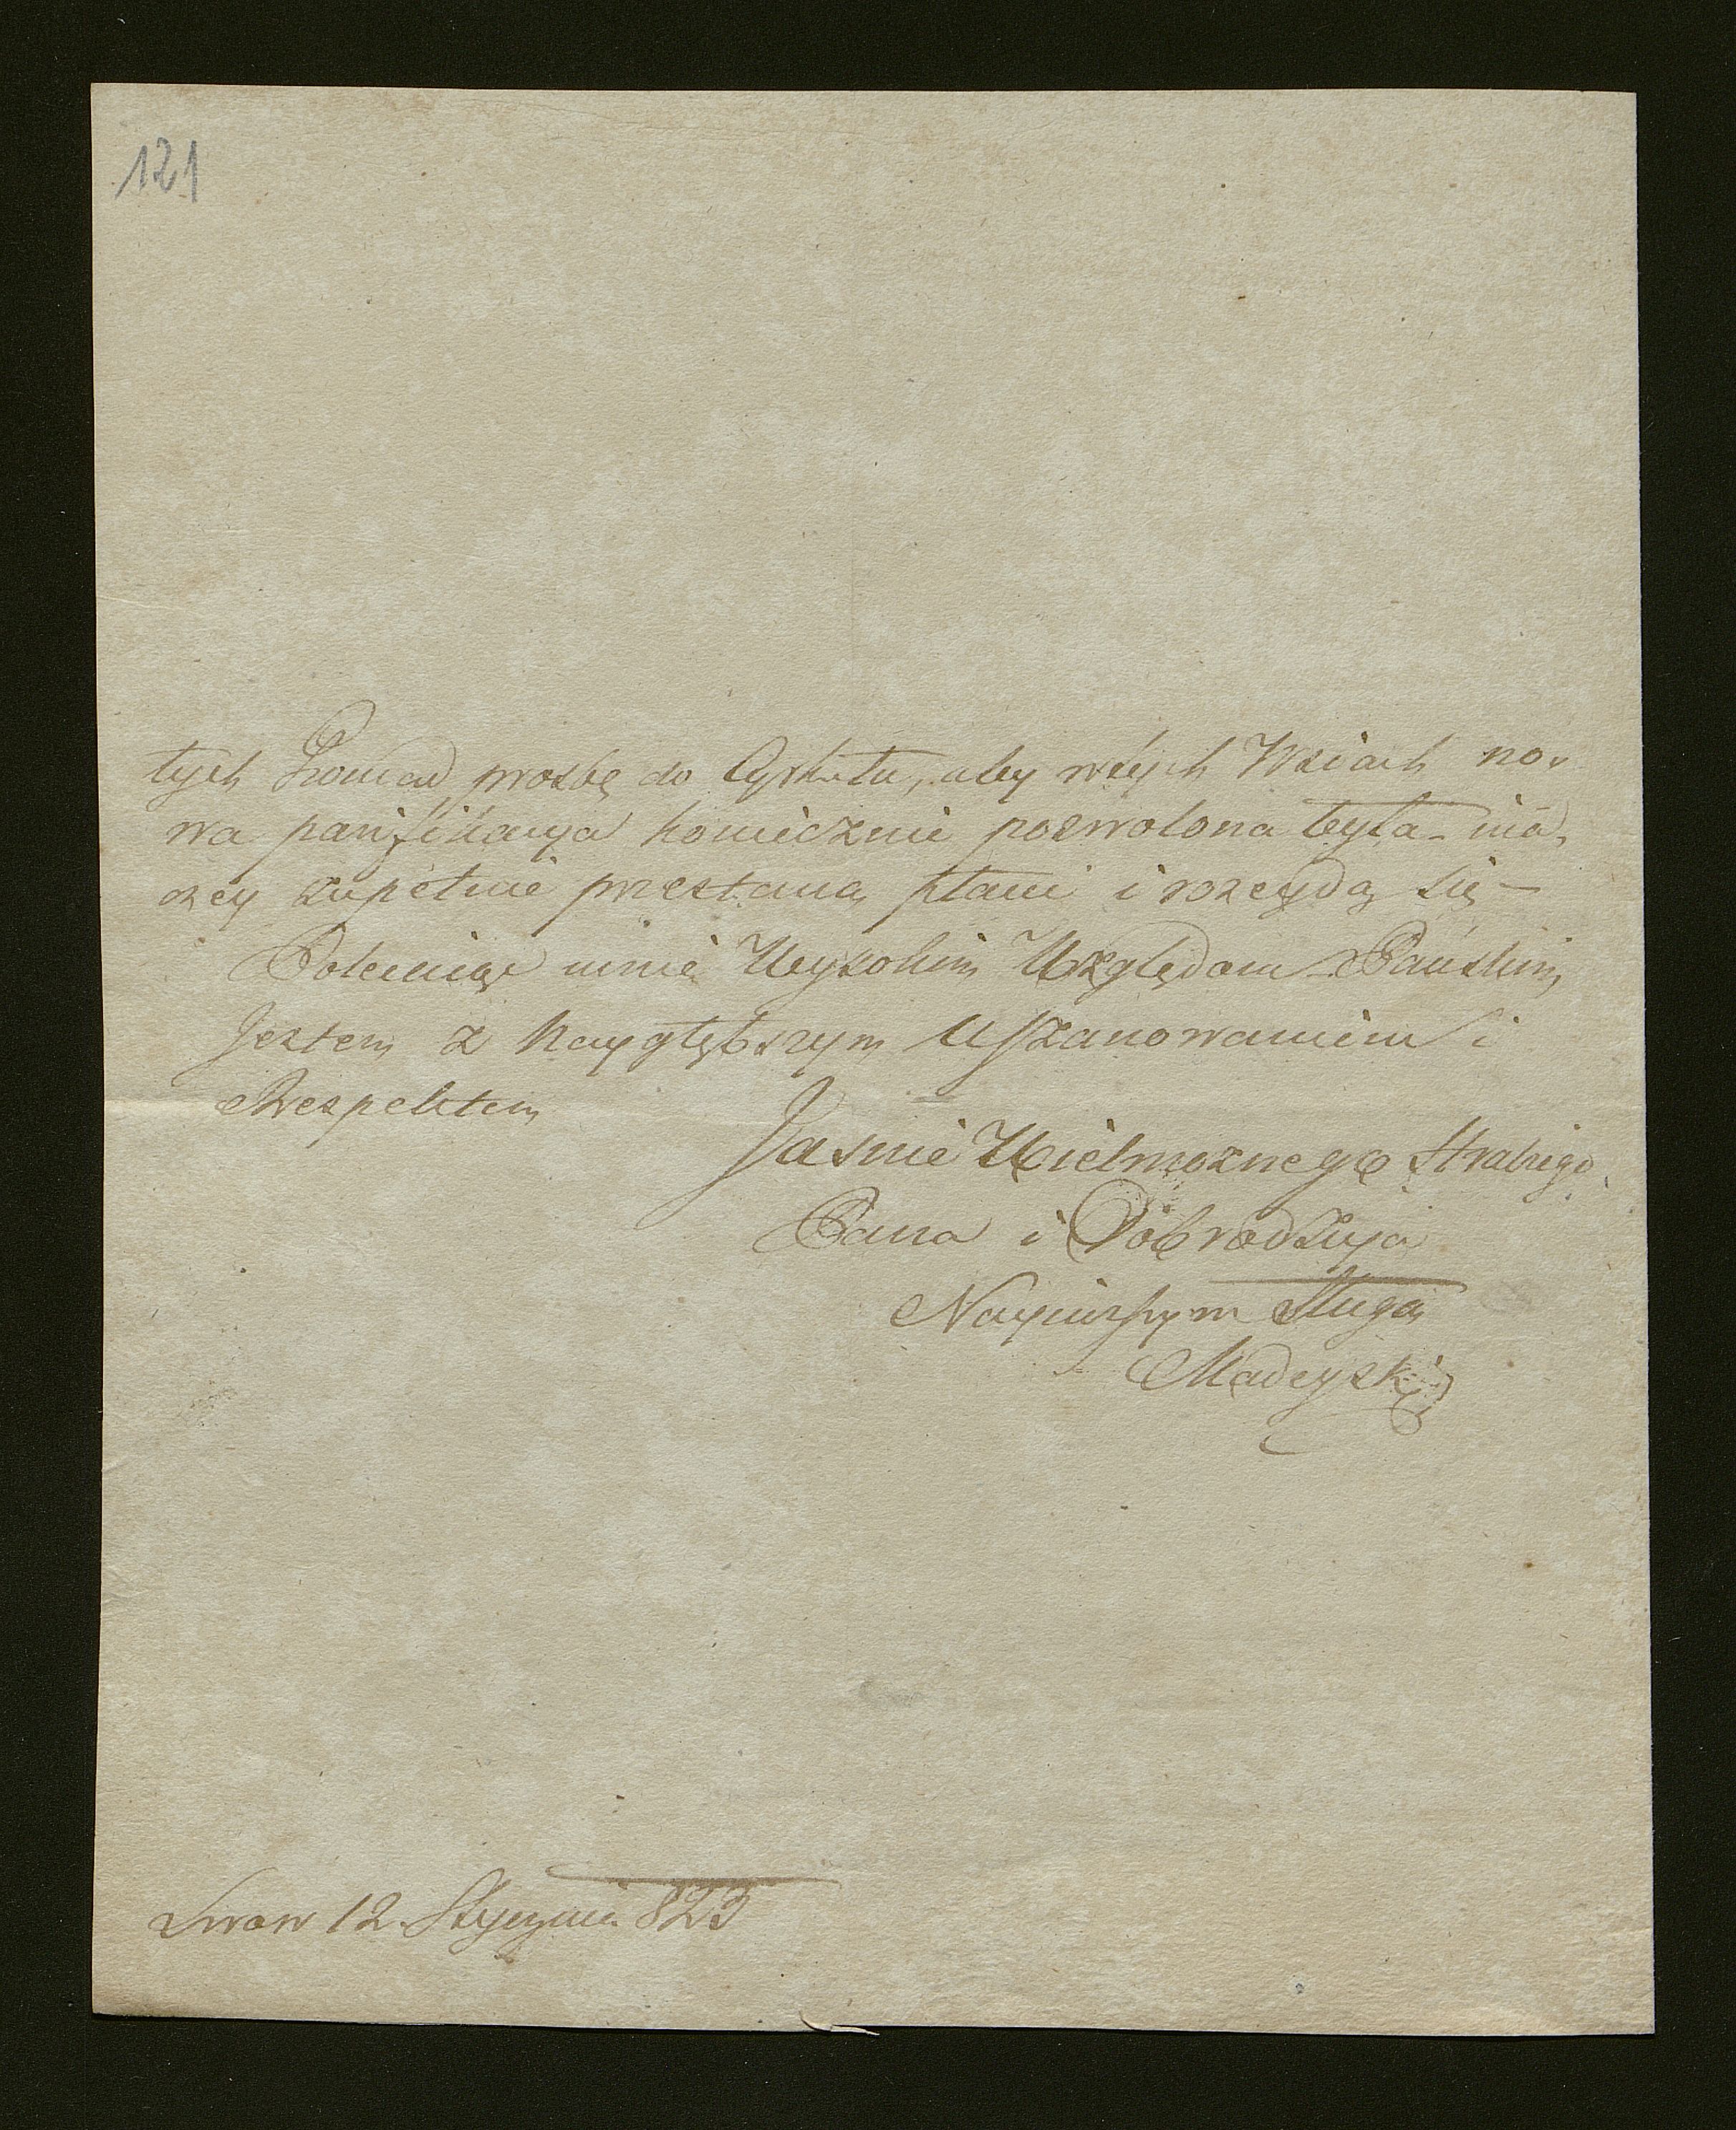 121
tych Gromad prosbę do Cyrkułu, aby w tych Wsiach no-
wa paryfikacya koniecznie pozwolona była – ina-
czey zupełnie przestaną płacić i rozeydą się –
Polecaiąc mnie Wysokim Względom Pańskim
Jestem z Nayglębszym Uszanowaniem i
Respektem
Jasnie Wielmoznego Hrabiego
Pana i Dobrodzieja
Nayniższym Sługą
Madeyski
Lwow 12. Stycznia 823